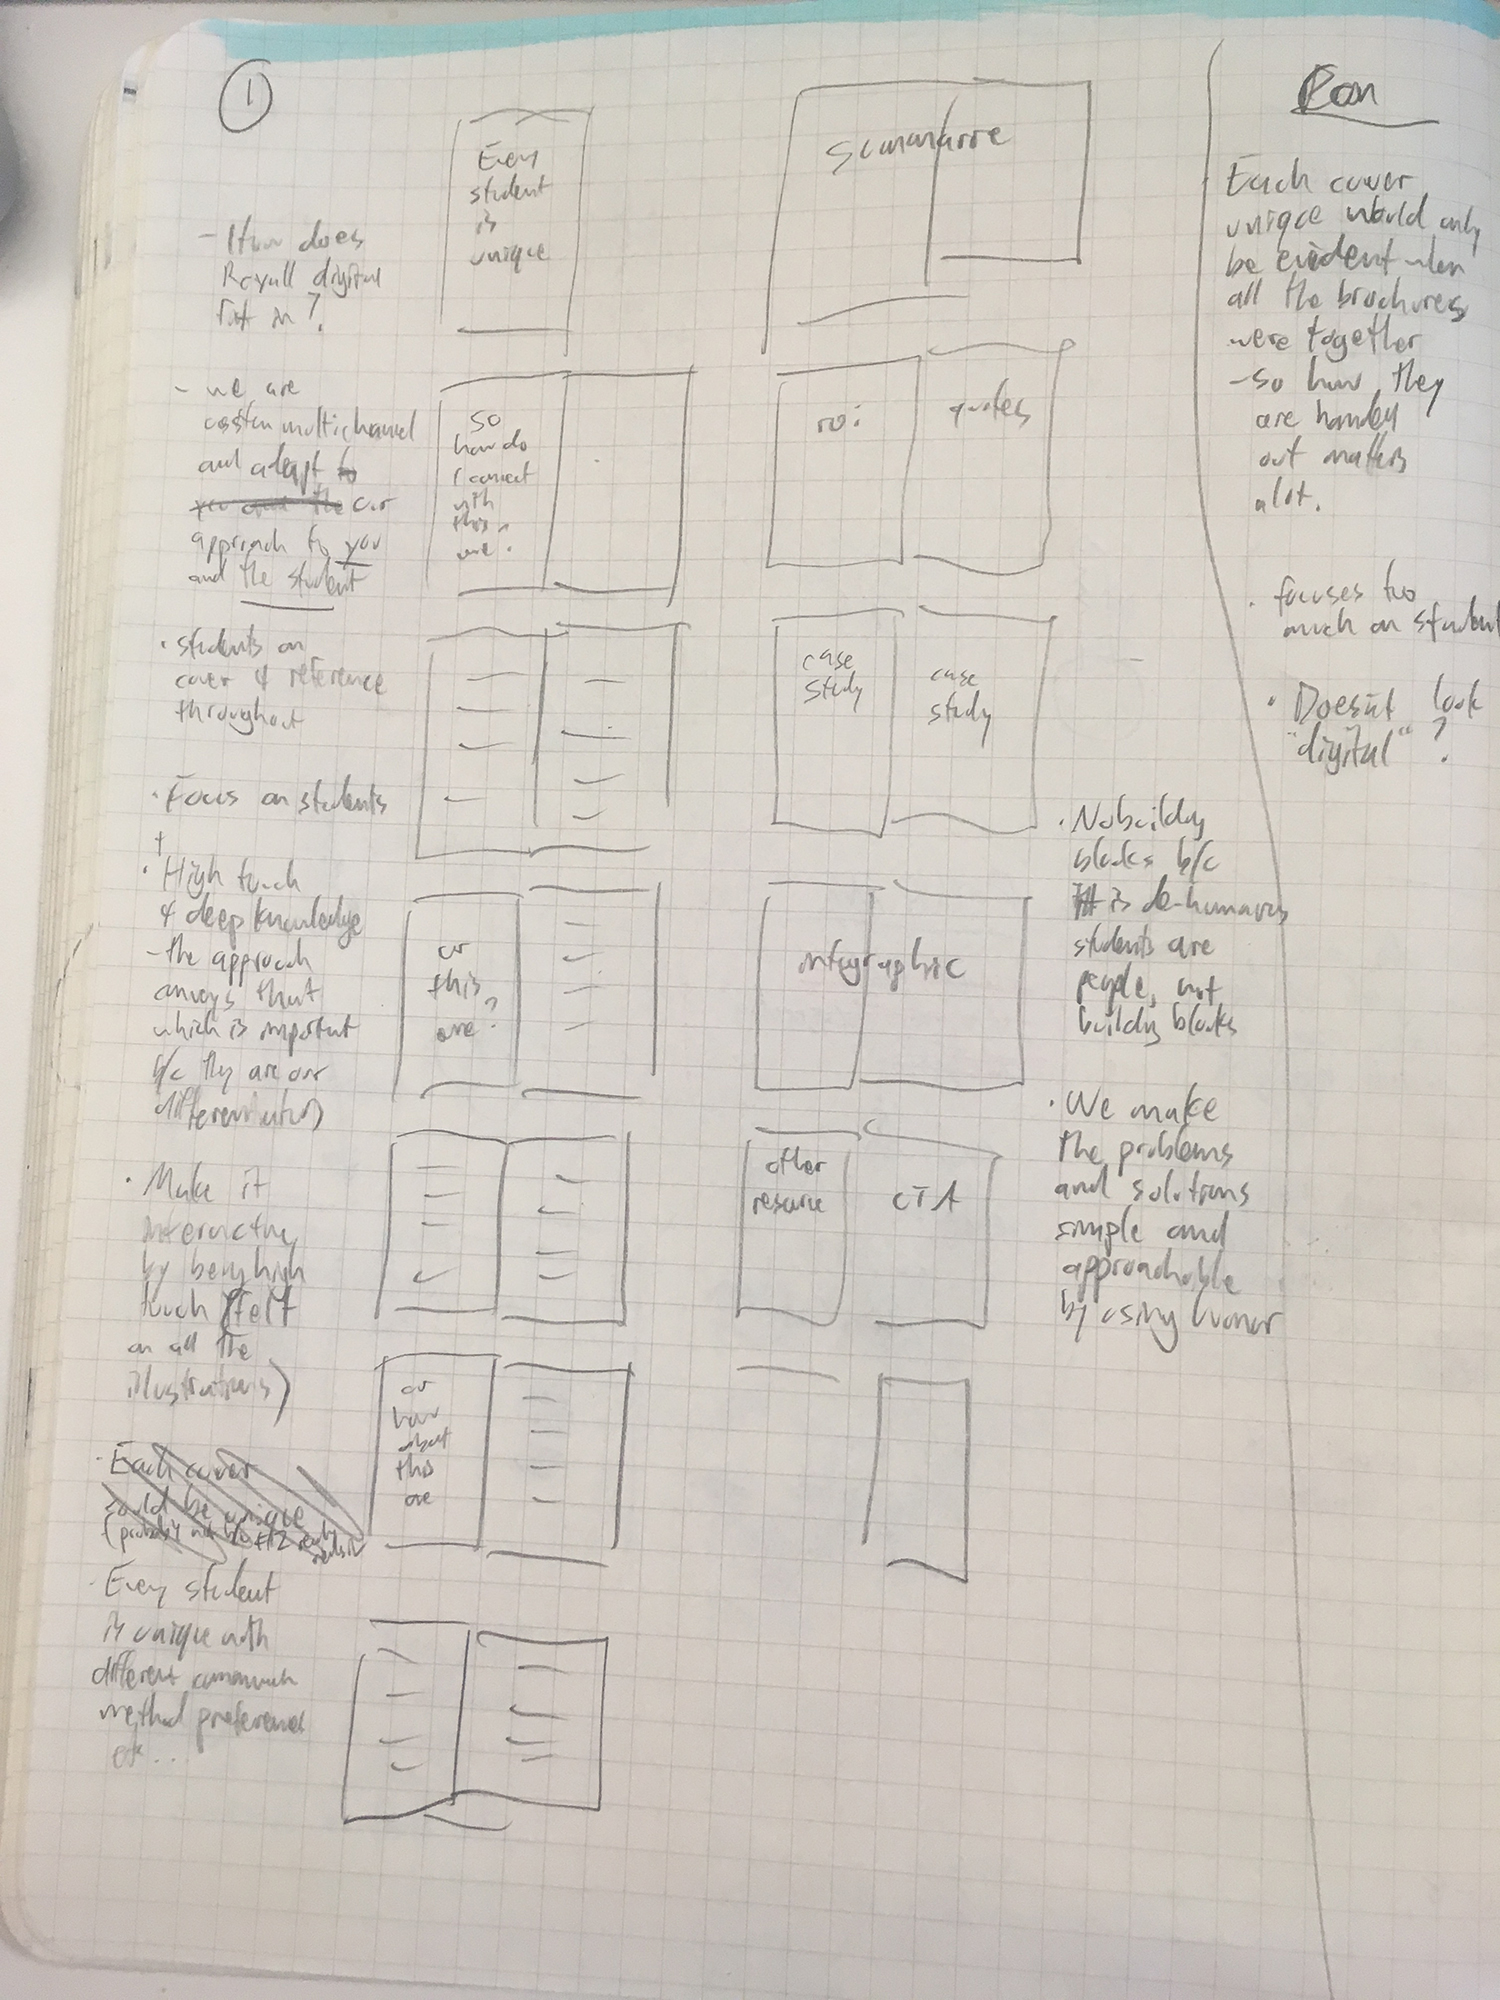 1
- How does
Royall digital
fit in?
- we are
custom multichannel
and adapt to
our
approach to you
and the student
· students on
cover & reference
throughout
· Focus on students
+
· High touch
& deep knowledge
- the approach
conveys that
which is important
b/c they are our
differentiators
· Make it
interactive
by being high
touch (felt
on all the
illustrations)
· Each cover
could be unique
(probably not b/c
· Every student
is unique with
different
method preferences
etc...
Every
student
is
unique
So
how do
I connect
with
this
one?
or
this
one?
or
how
about
this
one
Summarre
roi
quotes
case
study
case
study
infographic
other
resource
CTA
· No building
blocks b/c
it is de-humanizing
students are
people, not
building blocks
· We make
the problems
and solutions
simple and
approachable
by using humor
Con
Each cover
unique would only
be evident when
all the brochures
were together
- so how they
are handed
out matters
alot.
· focuses too
much on student
· Doesn't look
"digital"?